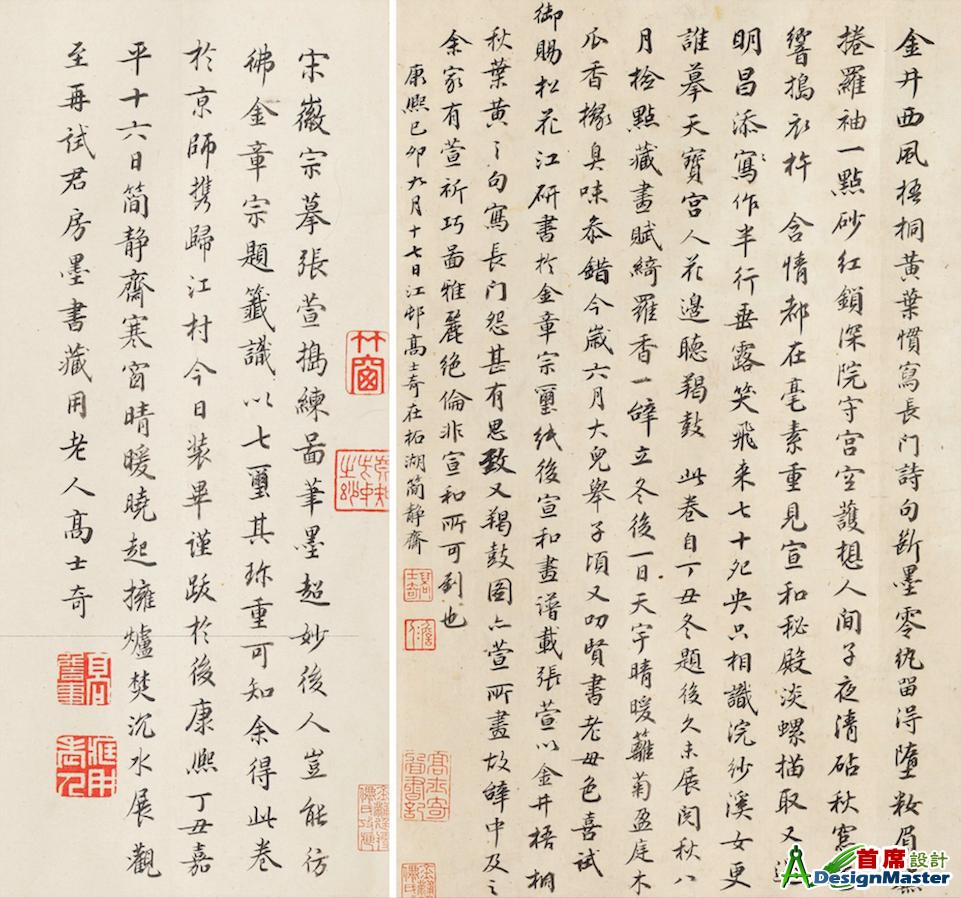 金井西風梧桐黃葉慣寫長門詩句斷墨零紈留得墮粧眉
捲羅袖一點砂紅鎖深院守宮空護想人間子夜清砧秋窓
響搗衣杵 含情都在毫素重見宣和秘殿淡螺描取又
明昌添寫作半行垂露笑飛来七十夗央只相識浣紗溪女更
誰摹天寶宮人花邊聽羯鼓 此卷自丁丑冬題後久未展閱秋八
月檢點藏畫賦綺羅香一闋立冬後一日天宇晴暖蘺菊盈庭木
瓜香櫞臭味叅錯今歲六月大兒舉子頃又叨賢書老母色喜試
御賜松花江研書於金章宗璽紙後宣和畫譜載張萱以金井梧桐
秋葉黃之句寫長門怨甚有思致又羯鼓圖亦萱所畫故闋中及之
余家有萱祈巧啚雅麗絕倫非宣和所可到也
康熙己卯九月十七日江邨高士奇在柘湖簡静齋
宋徽宗摹張萱搗練啚筆墨超妙後人豈能彷
彿金章宗題籤識以七璽其珎重可知余得此卷
於京師携歸江村今日装畢謹跋於後康熙丁丑嘉
平十六日簡静齋寒窗晴暖曉起擁爐焚沉水展觀
至再試君房墨書藏用老人高士奇
竹窗
高士奇
首席設計
DesignMaster